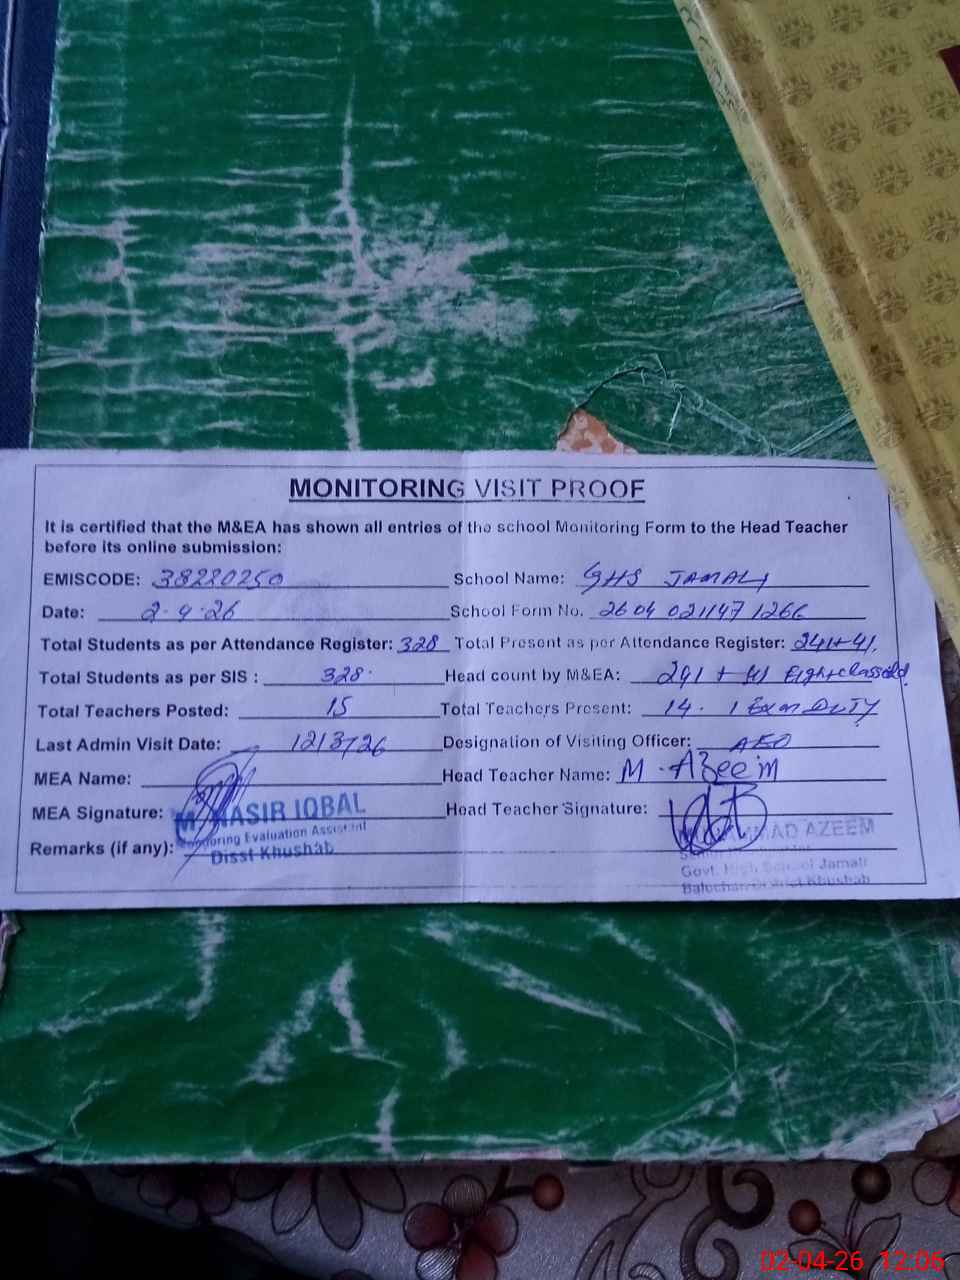 MONITORING VISIT PROOF
It is certified that the M&EA has shown all entries of the school Monitoring Form to the Head Teacher
before its online submission:
EMISCODE: 38220250 School Name: GHS JAMALI
Date: 2-4-26 School Form No. 2604 021147 1266
Total Students as per Attendance Register: 328 Total Present as per Attendance Register: 241+41.
Total Students as per SIS : 328. Head count by M&EA: 241 + 41 Eighth class
Total Teachers Posted: 15 Total Teachers Present: 14. 1 Exam DUTY
Last Admin Visit Date: 12/3/26 Designation of Visiting Officer: AEO
MEA Name: Head Teacher Name: M. Azeem
MEA Signature: M NASIR IQBAL Head Teacher Signature: MUHAMMAD AZEEM
Monitoring Evaluation Assistant
Remarks (if any): Disst Khushab
Govt. High School Jamali
Balochan District Khushab
02-04-26 12:06